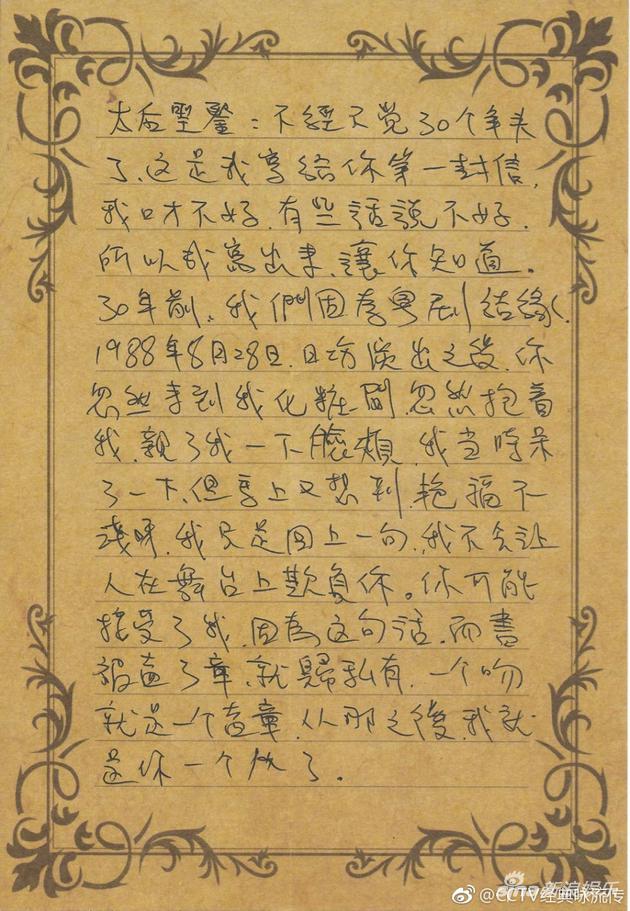 太后聖鑒：不經不觉30个年头
了、这是我寫給你第一封信，
我口才不好．有些話說不好．
所以我寫出来，讓你知道。
30年前、我們因為粤剧結緣．
1988年8月28日．日场演出之後．你
忽然来到我化粧間．忽然抱着
我．親了我一下臉頰．我当時呆
了一下．但馬上又想到．艳福不
淺呀．我只是回上一句．我不会让
人在舞台上欺負你。你可能
接受了我．因為这句話．而書
被蓋了章、就歸私有．一个吻
就是一个盖章．从那之後．我就
是你一个的了。
sina新浪娱乐
@CCTV经典咏流传